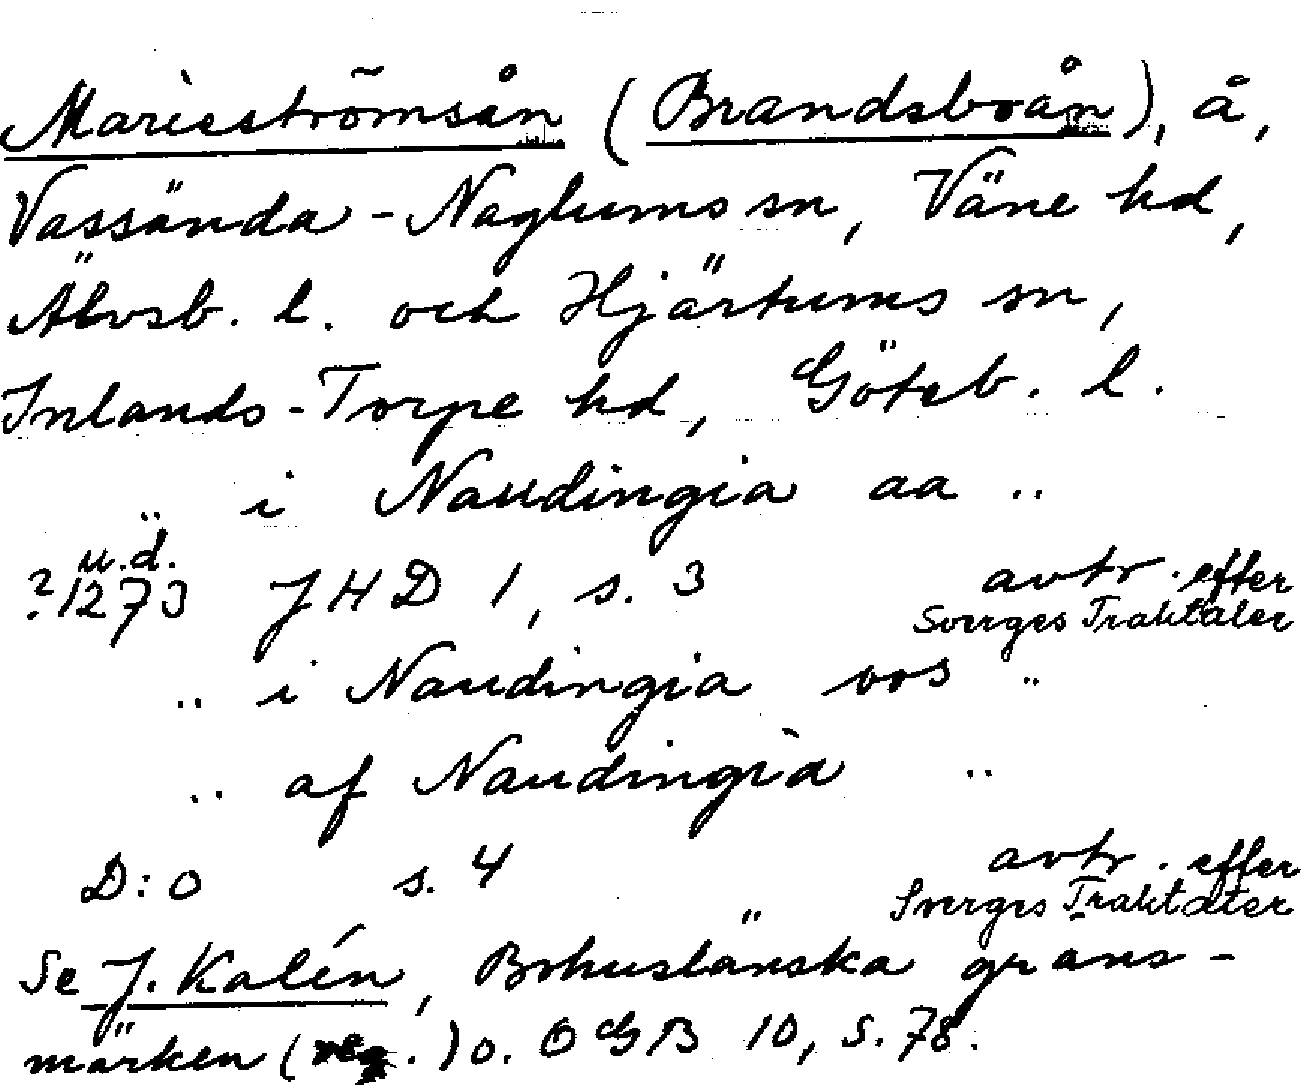 Marieströmsån (Brandsboån), å,
Vassända-Naglums sn, Väne hd,
Älvsb. l. och Hjärtums sn,
Inlands-Torpe hd, Göteb. l.
.. i Naudingia aa ..
u.d.
?1273 JHD 1, s. 3 avtr. efter
Sverges Traktater
.. i Naudingia oos ..
.. af Naudingia ..
D:o s. 4 avtr. efter
Sverges Traktater
Se J. Kalén, Bohuslänska gräns-
märken (reg.) o. OGB 10, s. 78.